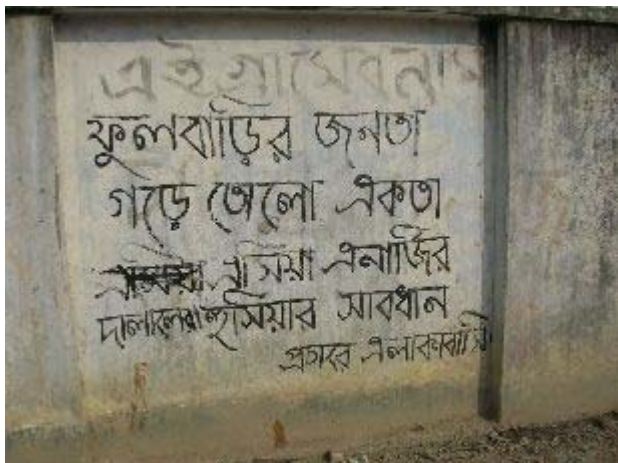 এই গ্রামের নাম
ফুলবাড়ির জনতা
গড়ে তোলো একতা
এসিয়া এনার্জির
দালালেরা হুসিয়ার সাবধান
প্রচারে এলাকাবাসি